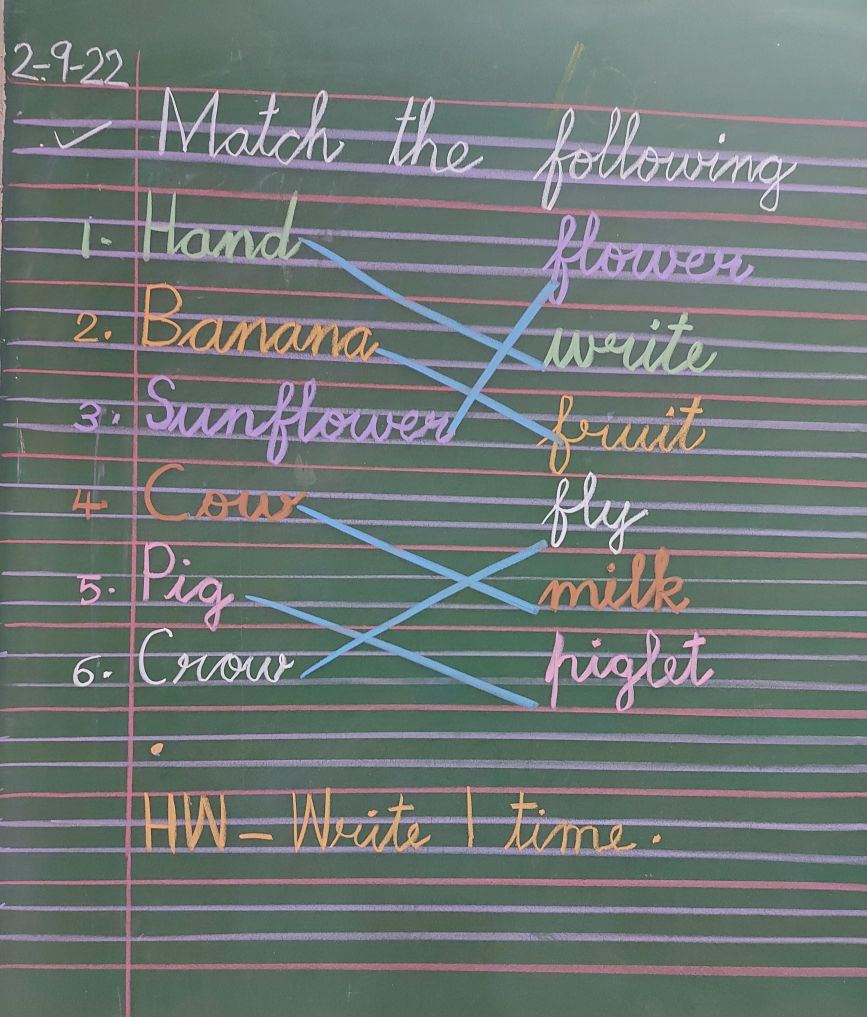 2-9-22
Match the following
1. Hand flower
2. Banana write
3. Sunflower fruit
4. Cow fly
5. Pig milk
6. Crow piglet
HW - Write 1 time.